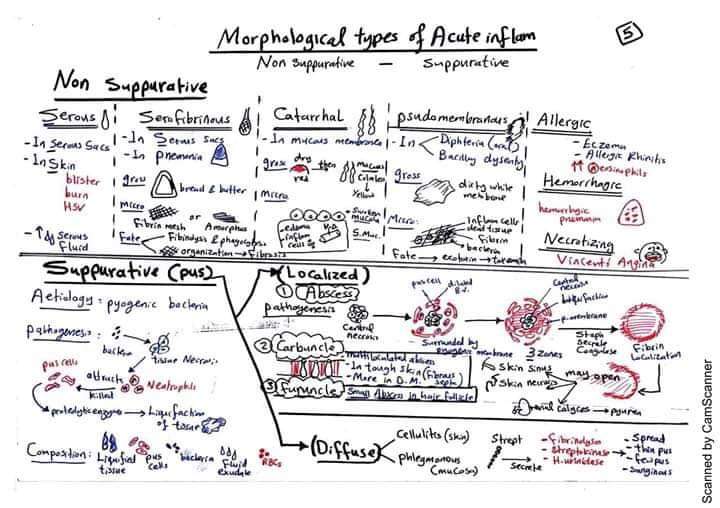 Morphological types of Acute inflam
5
Non Suppurative — Suppurative
Non Suppurative
Serous
- In Serous Sacs
- In Skin
blister
burn
HSV
- ↑ Serous
Fluid
Serofibrinous
- In Serous sacs
- In pneumonia
gross
bread & butter
micro
or
Fibrin mesh
Amorphus
Fate
Fibinolysis & phagocytosis
organization → Fibrosis
Catarrhal
- In mucous membrane
gross
dry then
red
mucous
Yellow
micro.
edema
inflam
cells
V.D
Swollen
mucosa
S.Muc.
psudomembranous
- In
Diphteria
Bacillary dysentry
gross
dirty white
membrane
Micro:
Inflam cells
dead tissue
Fibrin
bacteria
Fate → exotoxin →
Allergic
- Eczema
- Allergic Rhinitis
↑↑ eosinophils
Hemorrhagic
hemorrhagic
pneumonia
Necrotizing
Vincent Angina
Suppurative (pus)
Aetiology: pyogenic bacteria
pathogenesis:
bacteria
tissue Necrosis
pus cells
attracts
Neutrophils
killed
proteolytic enzyme → Liquifaction
of tissue
Composition:
Liquified
tissue
pus
cells
bacteria
Fluid
exudate
RBCs
(Localized)
① Abscess
pathogenesis
Central
necrosis
pus cell
dilated
B.V.
Surrounded by
pyogenic membrane
Central
necrosis
liquifaction
p.membrane
3 zones
Staph
Secrete
Coagulase
Fibrin
localization
may open
Skin sinus
Skin necrosis
renal calyces → pyuria
② Carbuncle
multiloculated abscess
- In tough skin (Fibrous
septa)
- More in D.M.
③ Furuncle
Small Abscess in hair follicle
(Diffuse)
Cellulitis (skin)
phlegmonous
(mucosa)
Strept
Secrete
- Fibrinolysin
- Streptokinase
- Hyaluronidase
- Spread
- thin pus
- few pus
- Sanginous
Scanned by CamScanner